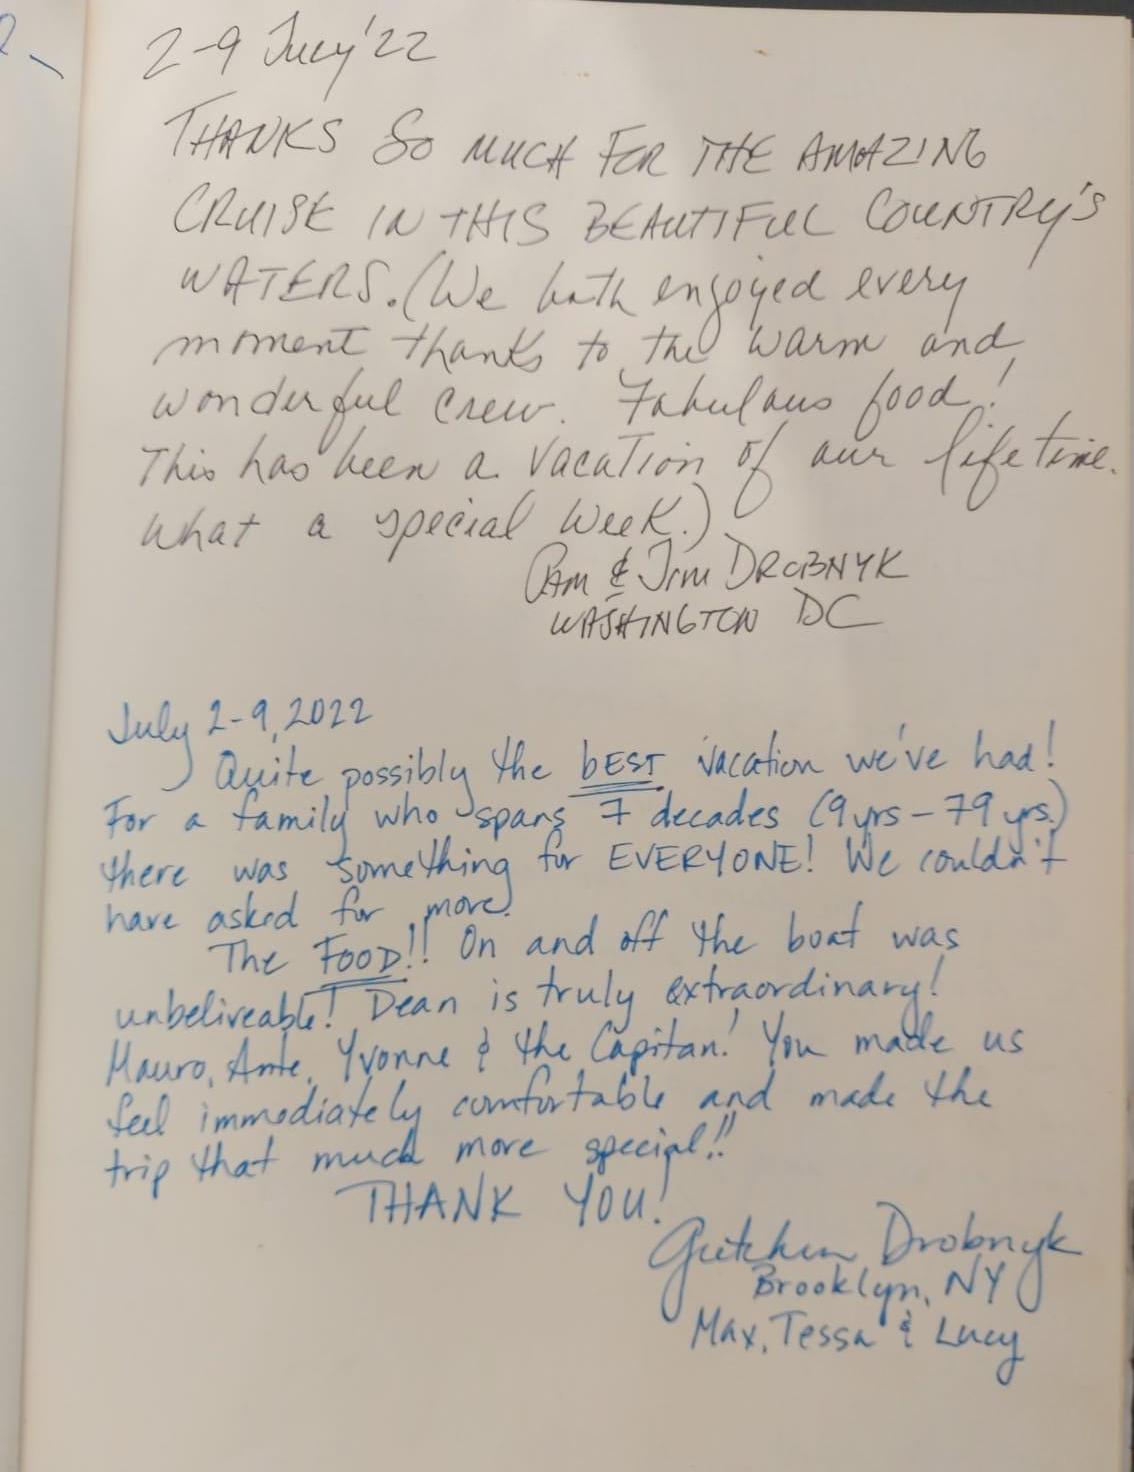 2-9 July '22
THANKS SO MUCH FOR THE AMAZING
CRUISE IN THIS BEAUTIFUL COUNTRY'S
WATERS. (We both enjoyed every
moment thanks to the warm and
wonderful crew. Fabulous food!
This has been a vacation of our lifetime.
What a special week.)
PAM & JIM DROBNYK
WASHINGTON DC
July 2-9, 2022
Quite possibly the bEST vacation we've had!
For a family who spans 7 decades (9yrs-79yrs.)
there was something for EVERYONE! We couldn't
have asked for more.
The FOOD!! On and off the boat was
unbeliveable! Dean is truly extraordinary!
Mauro, Ante, Yvonne & the Capitan! You made us
feel immediately comfortable and made the
trip that much more special!!
THANK YOU!
Gretchen Drobnyk
Brooklyn, NY
Max, Tessa & Lucy